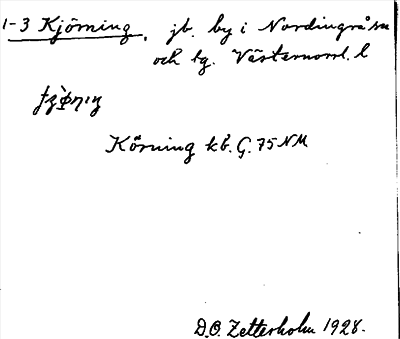 1-3 Kjörning, jb. by i Nordingrå sn
och tg. Västernorrl. l
Körning kb. G. 75 NM
D.O. Zetterholm 1928.